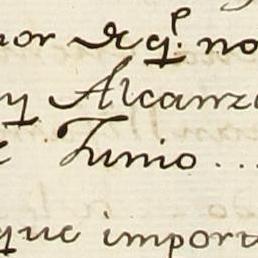 por no
y Alcanz
Junio ...
que import